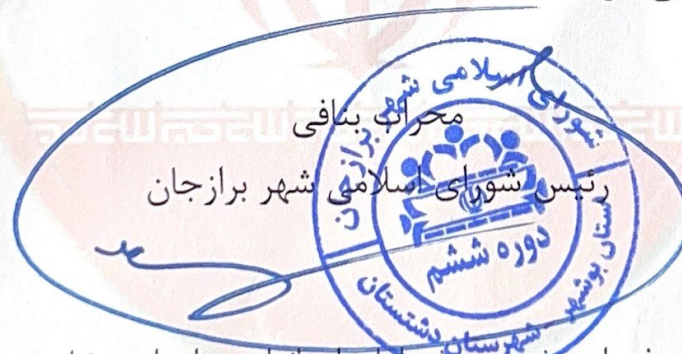 محراب بنافی
رئیس شورای اسلامی شهر برازجان
شورای اسلامی شهر برازجان
دوره ششم
استان بوشهر - شهرستان دشتستان